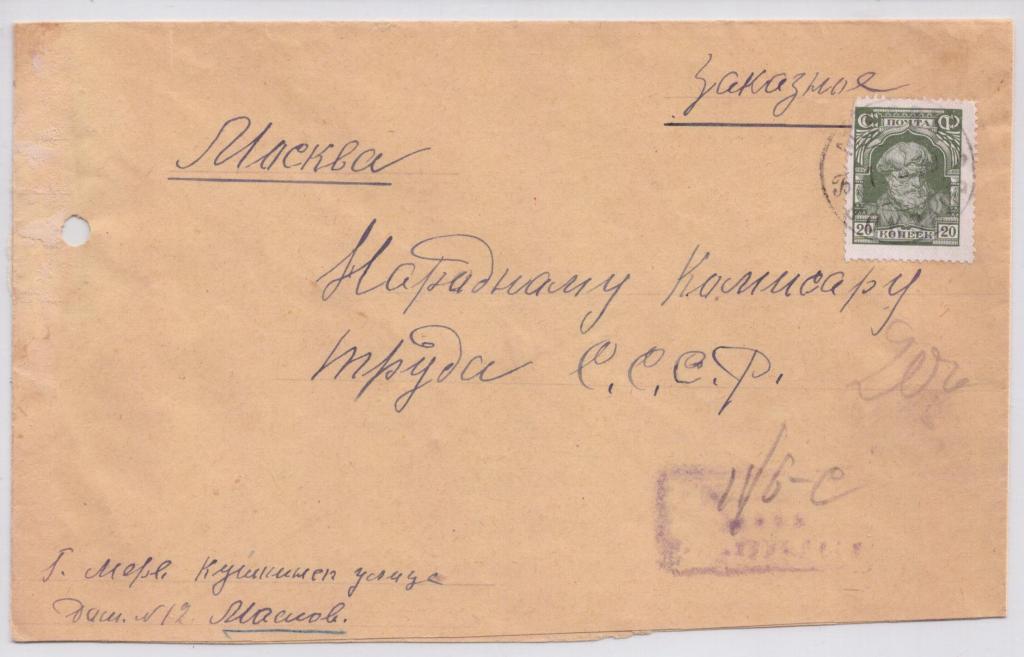 Заказное
Москва
ПОЧТА
20 КОПЕЕК 20
Народному Комисару
труда С.С.С.Р.
11/6-С
Г. Мерв. Кушкинск улица
Дом. N12. Маслов.